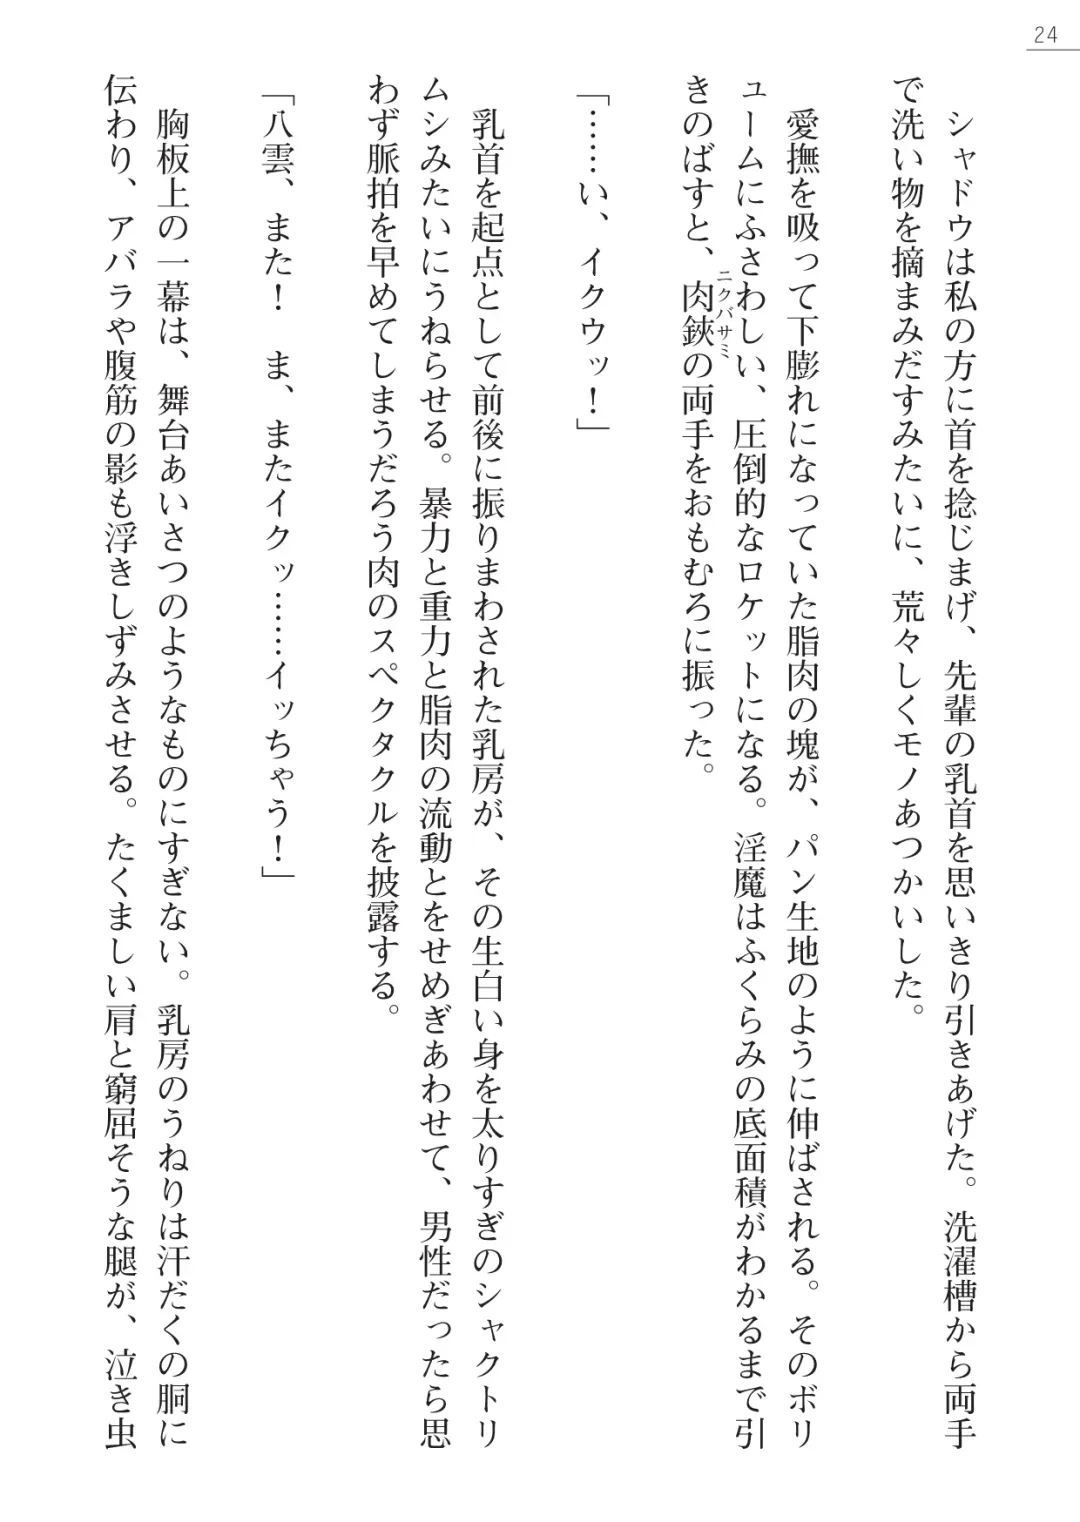 24
シャドウは私の方に首を捻じまげ、先輩の乳首を思いきり引きあげた。洗濯槽から両手
で洗い物を摘まみだすみたいに、荒々しくモノあつかいした。
愛撫を吸って下膨れになっていた脂肉の塊が、パン生地のように伸ばされる。そのボリ
ュームにふさわしい、圧倒的なロケットになる。淫魔はふくらみの底面積がわかるまで引
ニクバサミ
きのばすと、肉鋏の両手をおもむろに振った。
「……い、イクウッ！」
乳首を起点として前後に振りまわされた乳房が、その生白い身を太りすぎのシャクトリ
ムシみたいにうねらせる。暴力と重力と脂肉の流動とをせめぎあわせて、男性だったら思
わず脈拍を早めてしまうだろう肉のスペクタクルを披露する。
「八雲、また！　ま、またイクッ……イッちゃう！」
胸板上の一幕は、舞台あいさつのようなものにすぎない。乳房のうねりは汗だくの胴に
伝わり、アバラや腹筋の影も浮きしずみさせる。たくましい肩と窮屈そうな腿が、泣き虫